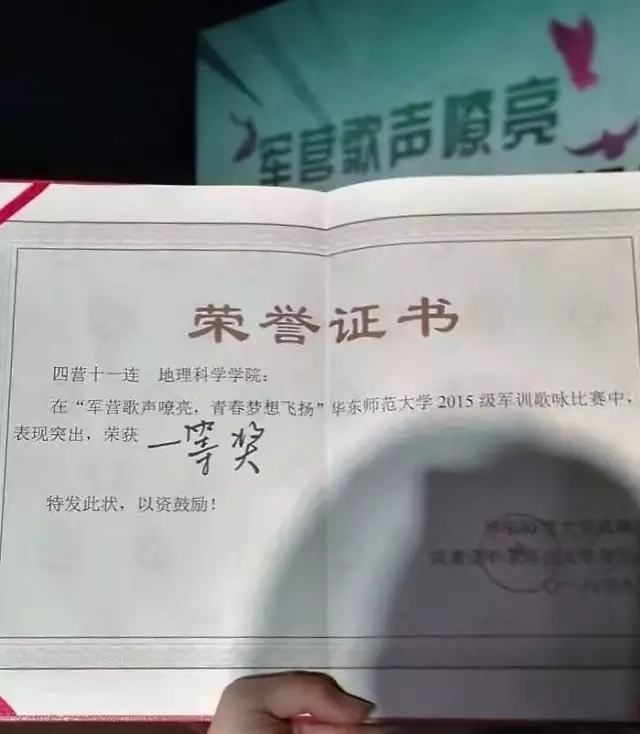 军营歌声嘹亮
荣誉证书
四营十一连 地理科学学院：
在“军营歌声嘹亮，青春梦想飞扬”华东师范大学2015级军训歌咏比赛中，
表现突出，荣获 一等奖
特发此状，以资鼓励！